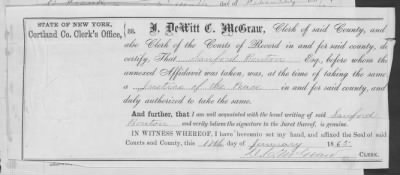 STATE OF NEW YORK, Cortland Co. Clerk's Office, } ss.
I. DeWitt C. McGraw, Clerk of said County, and
also Clerk of the Courts of Record in and for said county, do
certify, That Sanford Bouton Esq., before whom the
annexed Affidavit was taken, was, at the time of taking the same
a Justice of the Peace in and for said county, and
duly authorized to take the same.
And further, that I am well acquainted with the hand writing of said Sanford
Bouton and verily believe the signature to the Jurat thereof, is genuine.
IN WITNESS WHEREOF, I have hereunto set my hand, and affixed the Seal of said
Courts and County, this day of January 1865
D. C. McGraw CLERK.